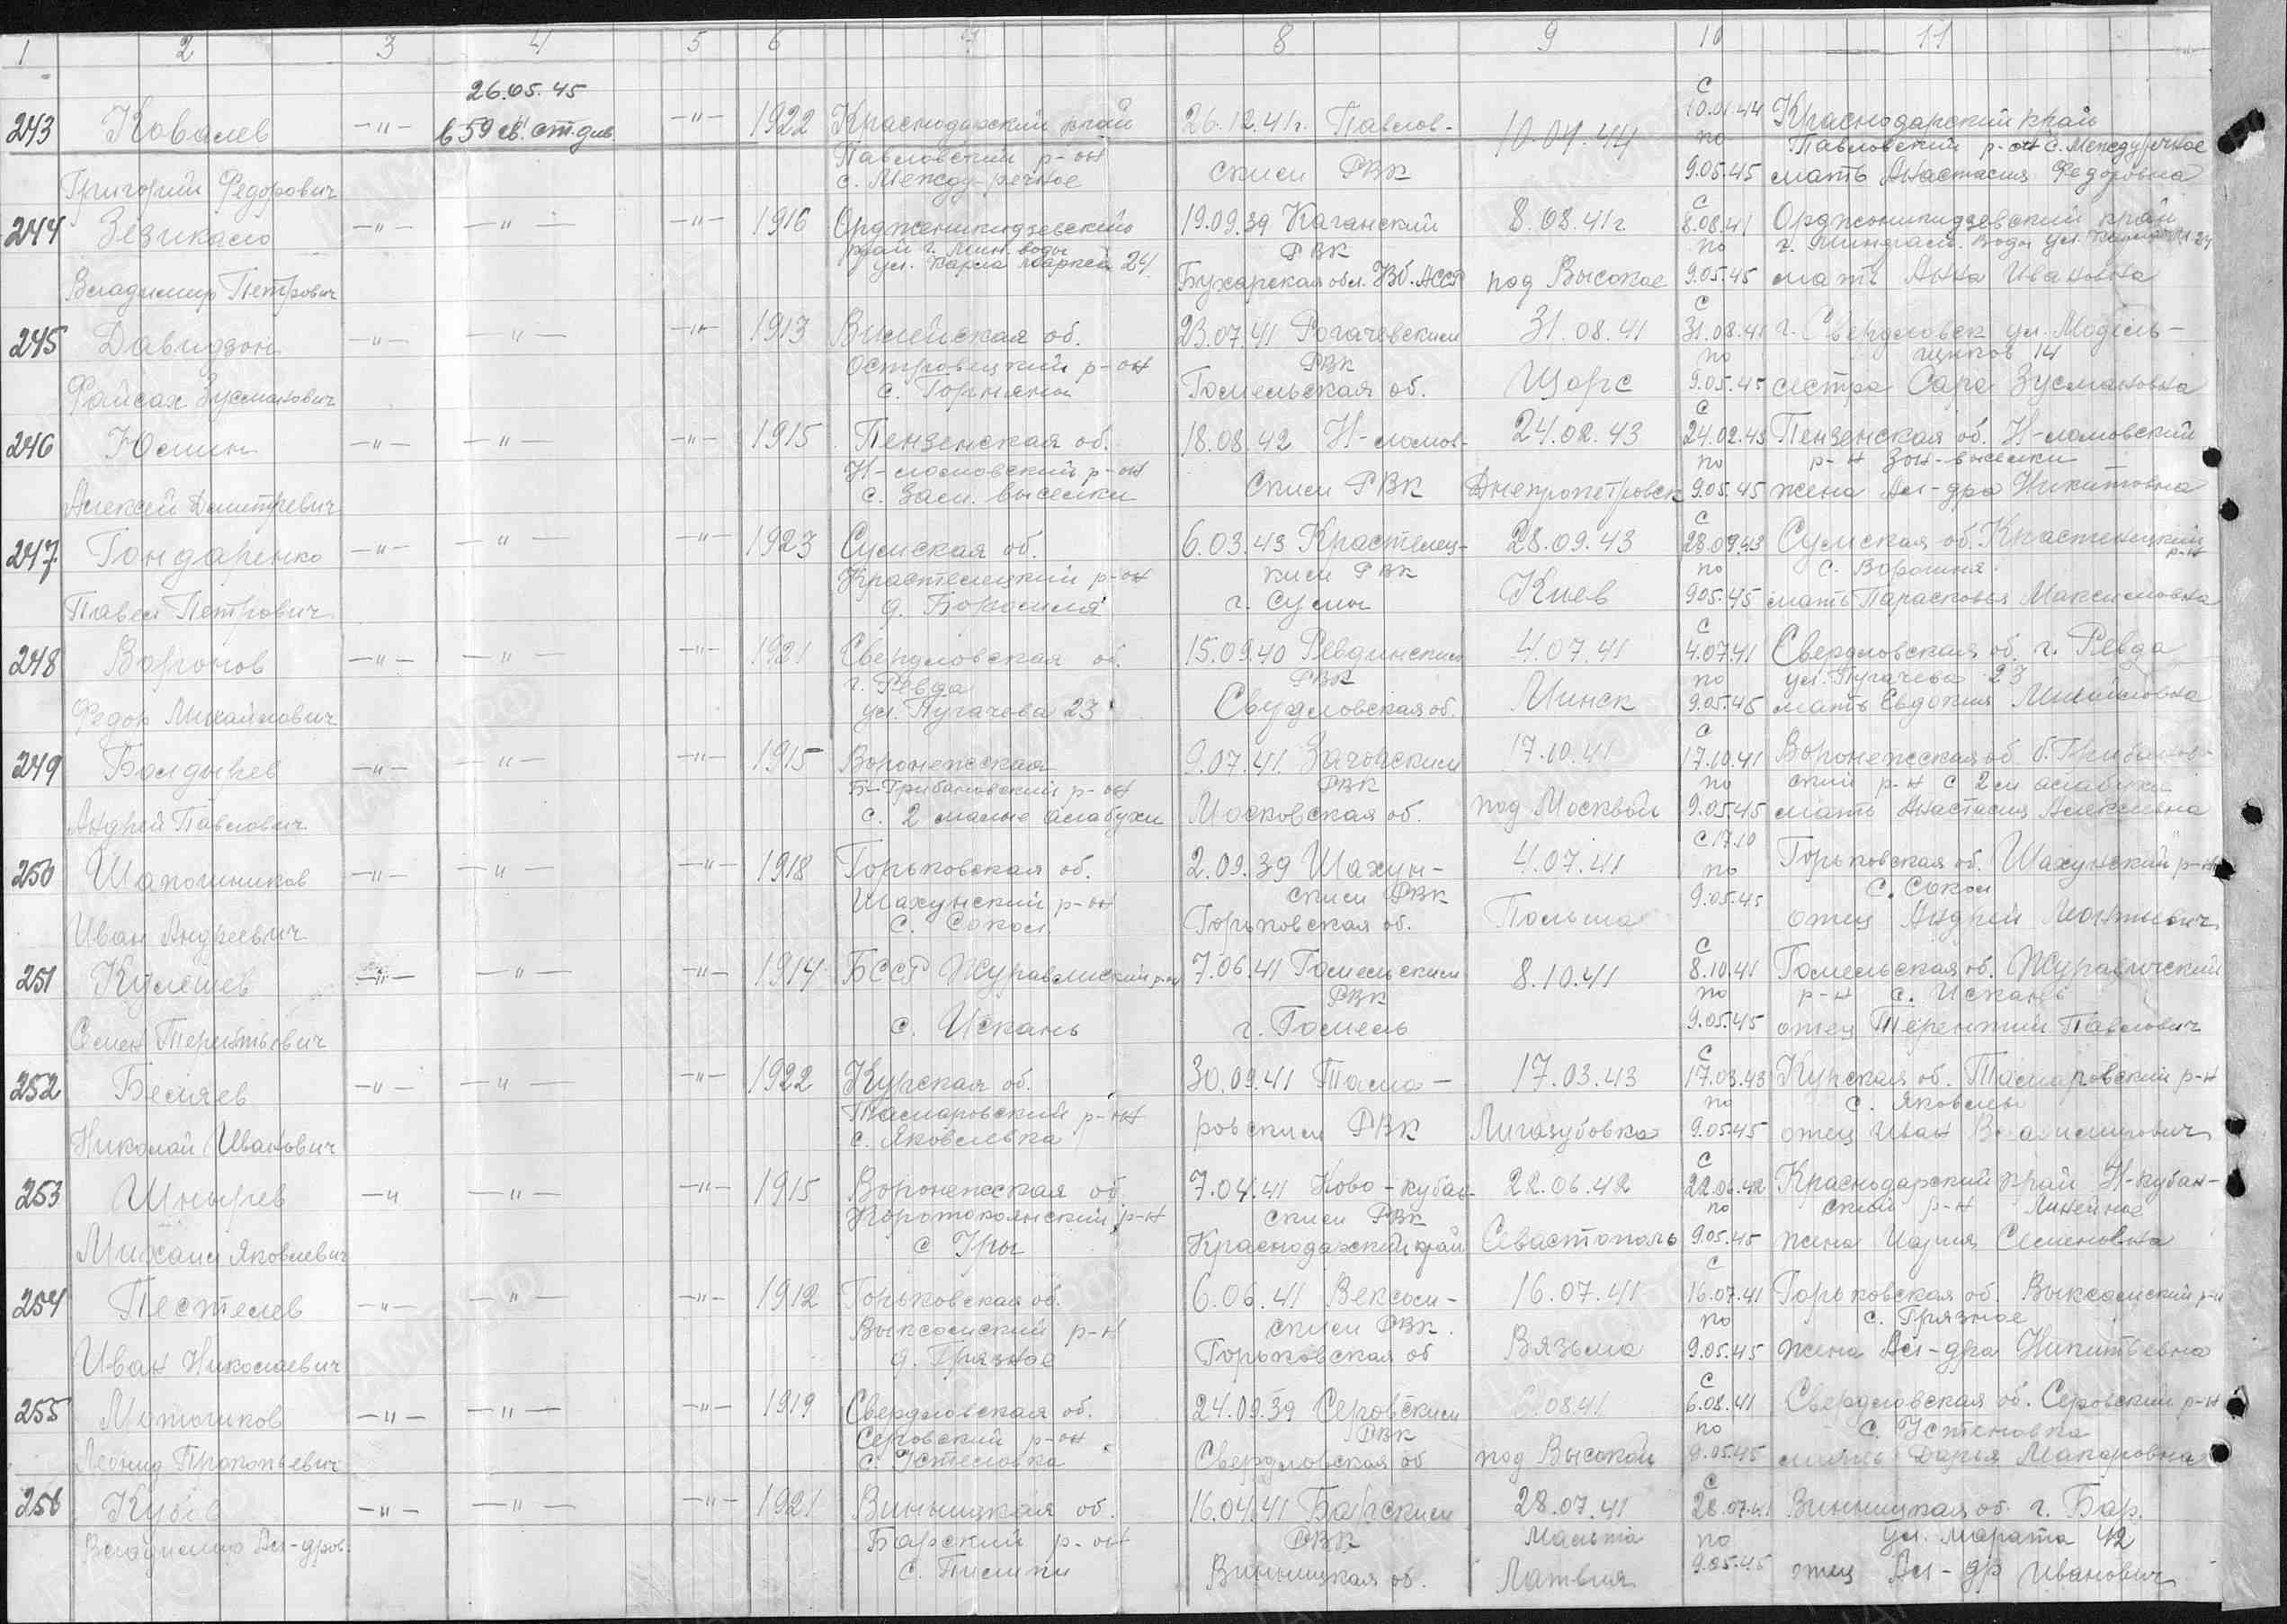 1 2 3 4 5 6 7 8 9 10 11
26.05.45
243 Ковалев —"— в 59 гв. ст. див. —"— 1922 Краснодарский край 26.12.41г. Павлов- 10.01.44 с 10.01.44 Краснодарский край
Павловский р-он по Павловский р-он с. Междуречное
Григорий Федорович с. Между-речное ским РВК 9.05.45 мать Анастасия Федоровна
244 Зезикало —"— —"— —"— 1916 Орджоникидзевский 19.09.39 Каганский 8.08.41г. с 8.08.41 Орджоникидзевский край
край г. Мин. воды РВК по г. Минерал. Воды ул. 24
ул. Карла Маркса 24
Владимир Петрович Бухарская обл. Узб. АССР под Высокое 9.05.45 мать Анна Ивановна
245 Давидзон —"— —"— —"— 1913 Вилейская об. 23.07.41 Рогачевским 31.08.41 с 31.08.41 г. Свердловск ул. Модель-
Островецкий р-он РВК по щиков 14
Файсах Зусманович с. Гомельская об. Щорс 9.05.45 сестра Сара Зусмановна
246 Юмин —"— —"— —"— 1915 Пензенская об. 18.08.42 Н-ломов- 24.02.43 с 24.02.43 Пензенская об. Н-ломовский
Н-ломовский р-он по р-н Зон-выселки
Алексей Дмитревич с. выселки ским РВК Днепропетровск 9.05.45 жена Ал-дра Никитовна
247 Гондаренко —"— —"— —"— 1923 Сумская об. 6.03.43 Крастелец- 28.09.43 с 28.09.43 Сумская об. р-н
Крастелецкий р-он ким РВК по с.
Павел Петрович д. г. Сумы Киев 9.05.45 мать Парасковья Максимовна
248 Воронов —"— —"— —"— 1921 Свердловская об. 15.09.40 Ревдинским 4.07.41 с 4.07.41 Свердловская об. г. Ревда
г. Ревда РВК по ул. Пугачева 23
Федор Михайлович ул. Пугачева 23 Свердловская об. Минск 9.05.45 мать Евдокия
249 Болдырев —"— —"— —"— 1915 Воронежская 9.07.41 Загорским 17.10.41 с 17.10.41 Воронежская об. б. Грибанов-
Б-Грибановский р-он РВК по ский р-н с 2 м алабухи
Андрей Павлович с. 2 малые алабухи Московская об. под Москвой 9.05.45 мать Анастасия Алексевна
250 Шапошников —"— —"— —"— 1918 Горьковская об. 2.09.39 Шахун- 4.07.41 с 17.10 Горьковская об. Шахунский р-н
Шахунский р-он ским РВК по с. Сокол
Иван Андреевич с. Сокол Горьковская об. Польша 9.05.45 отец Андрей
251 Кулешев —"— —"— —"— 1914 БССР Журавлиский р-он 7.06.41 Гомельским 8.10.41 с 8.10.41 Гомельская об. Журавичский
РВК по р-н с. Искань
Семен Терентьевич с. Искань г. Гомель 9.05.45 отец Терентий Павлович
252 Беляев —"— —"— —"— 1922 Курская об. 30.09.41 Тома- 17.03.43 с 17.03.43 Курская об. Томаровский р-н
Томаровский р-он по с.
Николай Иванович с. Яковлевка ровским РВК Лигазубовка 9.05.45 отец Иван Владимирович
253 Шнырев —" —"— —"— 1915 Воронежская об. 7.04.41 Ново-кубан- 22.06.42 с 22.06.42 Краснодарский край Н-кубан-
Коротоякский р-н ским РВК по ский р-н Линейное
Михаил Яковлевич с Краснодарский край Севастополь 9.05.45 жена Мария Семеновна
254 Пестелев —"— —"— —"— 1912 Горьковская об. 6.06.41 Вексом- 16.07.41 с 16.07.41 Горьковская об. Выксомский р-н
Выксомский р-н ским РВК. по с. Грязное
Иван Николаевич д. Грязное Горьковская об Вязьма 9.05.45 жена Ал-дра Никитьевна
255 —"— —"— —"— 1919 Свердловская об. 24.09.39 Серовским 6.08.41 с 6.08.41 Свердловская об. Серовский р-н
Серовский р-он РВК по с. Устеновка
Леонид Прокопьевич с. Свердловская об под Высокой 9.05.45 мать Дарья Макаровна
256 —"— —"— —"— 1921 Винницкая об. 16.04.41 Барским 28.07.41 с 28.07.41 Винницкая об. г. Бар.
Владимир Ал-дров. Барский р-он РВК по ул. Марата 42
с. Винницкая об. Латвия 9.05.45 отец Ал-др Иванович